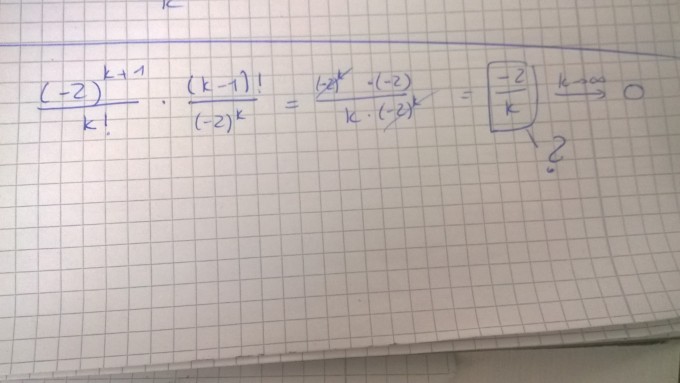 k
(-2)^{k+1} / k! · (k-1)! / (-2)^k = (-2)^k · (-2) / k · (-2)^k = -2 / k k→∞ 0
?